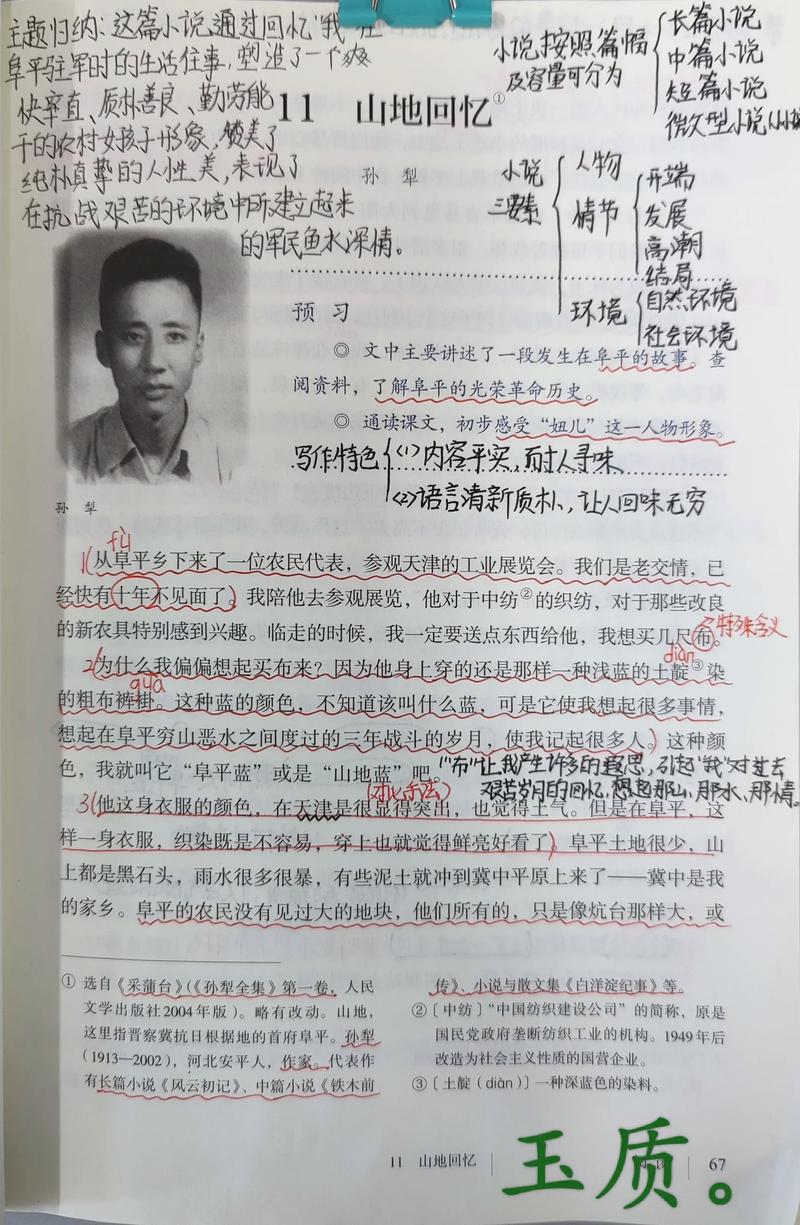 主题归纳：这篇小说通过回忆"我"在
阜平驻军时的生活往事，塑造了一个爽
快率直、质朴善良、勤劳能
干的农村女孩子形象，赞美了
纯朴真挚的人性美，表现了
在抗战艰苦的环境中所建立起来
的军民鱼水深情。
小说按照篇幅
及容量可分为
长篇小说
中篇小说
短篇小说
微型小说
11 山地回忆①
孙犁
小说
三要素
人物
情节
开端
发展
高潮
结局
环境
自然环境
社会环境
预习
◎ 文中主要讲述了一段发生在阜平的故事。查
阅资料，了解阜平的光荣革命历史。
◎ 通读课文，初步感受“妞儿”这一人物形象。
写作特色
(1)内容平实，耐人寻味
(2)语言清新质朴，让人回味无穷
孙犁
fù
1(从阜平乡下来了一位农民代表，参观天津的工业展览会。我们是老交情，已
经快有十年不见面了。我陪他去参观展览，他对于中纺②的织纺，对于那些改良
的新农具特别感到兴趣。临走的时候，我一定要送点东西给他，我想买几尺布。
特殊含义
diàn
2(为什么我偏偏想起买布来？因为他身上穿的还是那样一种浅蓝的土靛③染
guà
的粗布裤褂。这种蓝的颜色，不知道该叫什么蓝，可是它使我想起很多事情，
想起在阜平穷山恶水之间度过的三年战斗的岁月，使我记起很多人。)这种颜
色，我就叫它“阜平蓝”或是“山地蓝”吧。
"布"让我产生许多的遐思，引起"我"对过去
艰苦岁月的回忆，想起那山、那水、那情。
(对比手法)
3(他这身衣服的颜色，在天津是很显得突出，也觉得土气。但是在阜平，这
样一身衣服，织染既是不容易，穿上也就觉得鲜亮好看了。)阜平土地很少，山
上都是黑石头，雨水很多很暴，有些泥土就冲到冀中平原上来了——冀中是我
的家乡。阜平的农民没有见过大的地块，他们所有的，只是像炕台那样大，或
① 选自《采蒲台》(《孙犁全集》第一卷，人民
文学出版社2004年版）。略有改动。山地，
这里指晋察冀抗日根据地的首府阜平。孙犁
（1913—2002），河北安平人，作家。代表作
有长篇小说《风云初记》、中篇小说《铁木前
传》、小说与散文集《白洋淀纪事》等。
②〔中纺〕“中国纺织建设公司”的简称，原是
国民党政府垄断纺织工业的机构。1949年后
改造为社会主义性质的国营企业。
③〔土靛（diàn）〕一种深蓝色的染料。
11 山地回忆
67
玉质。